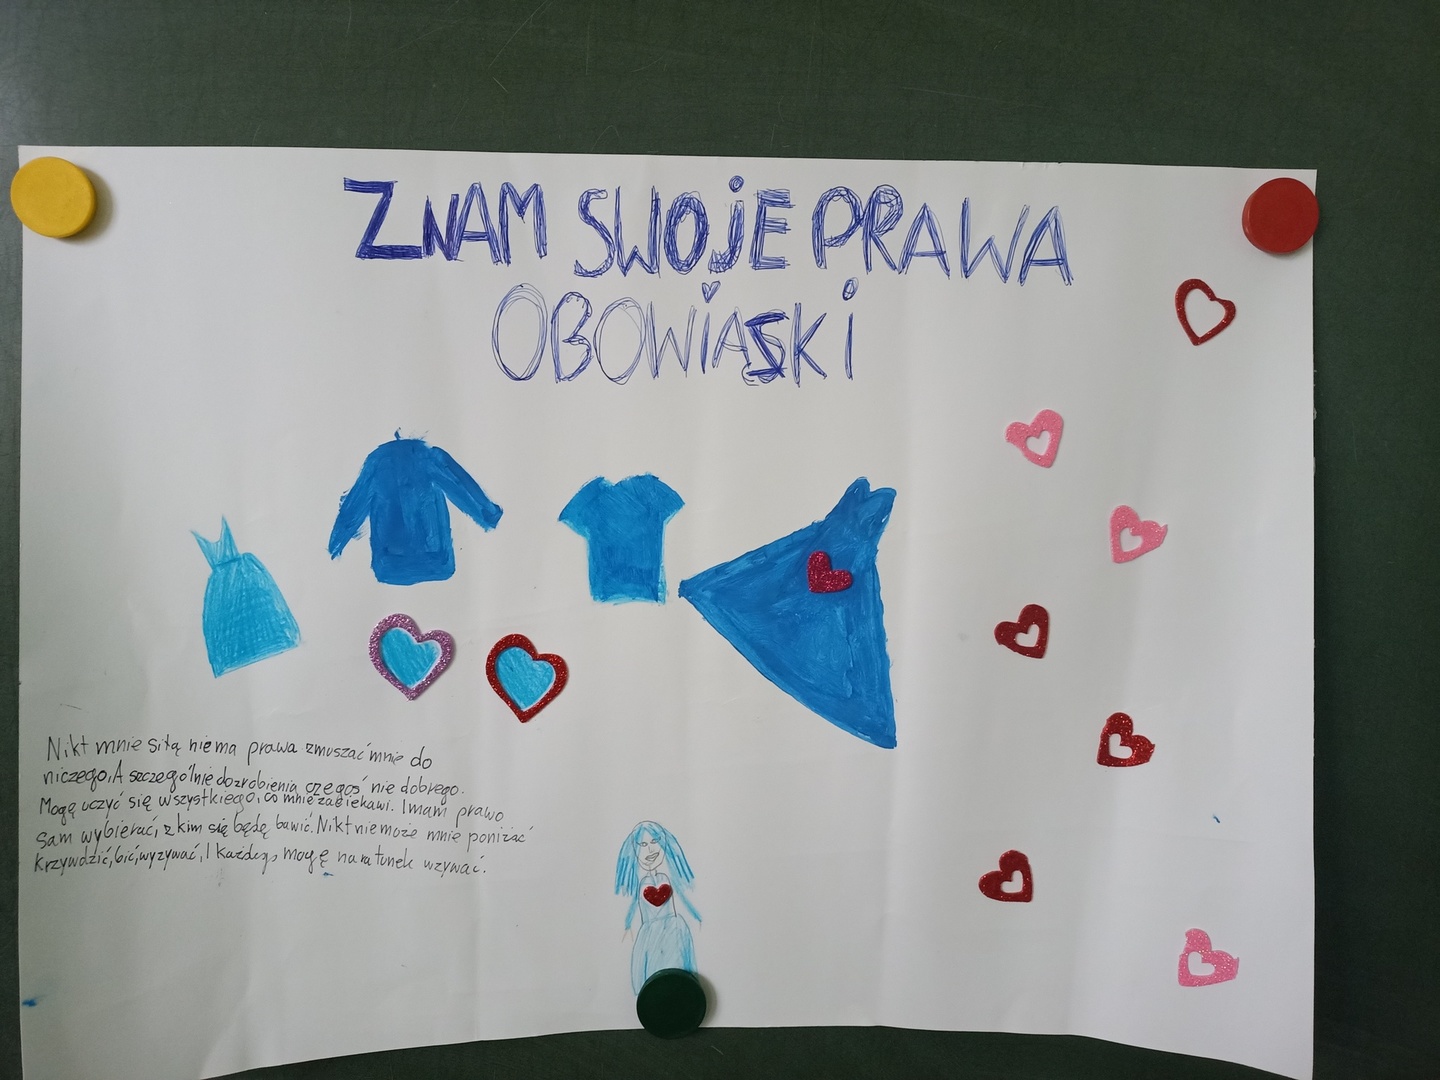 ZNAM SWOJE PRAWA
OBOWiĄSKi
Nikt mnie siłą niema prawa zmuszać mnie do
niczego, A szczególnie dozrobienia czegoś nie dobrego.
Mogę uczyć się wszystkiego, co mnie zaciekawi. I mam prawo
Sam wybierać, z kim się będę bawić. Nikt nie może mnie poniżać
Krzywdzić, bić, wyzywać, I każdego mogę na ratunek wzywać.